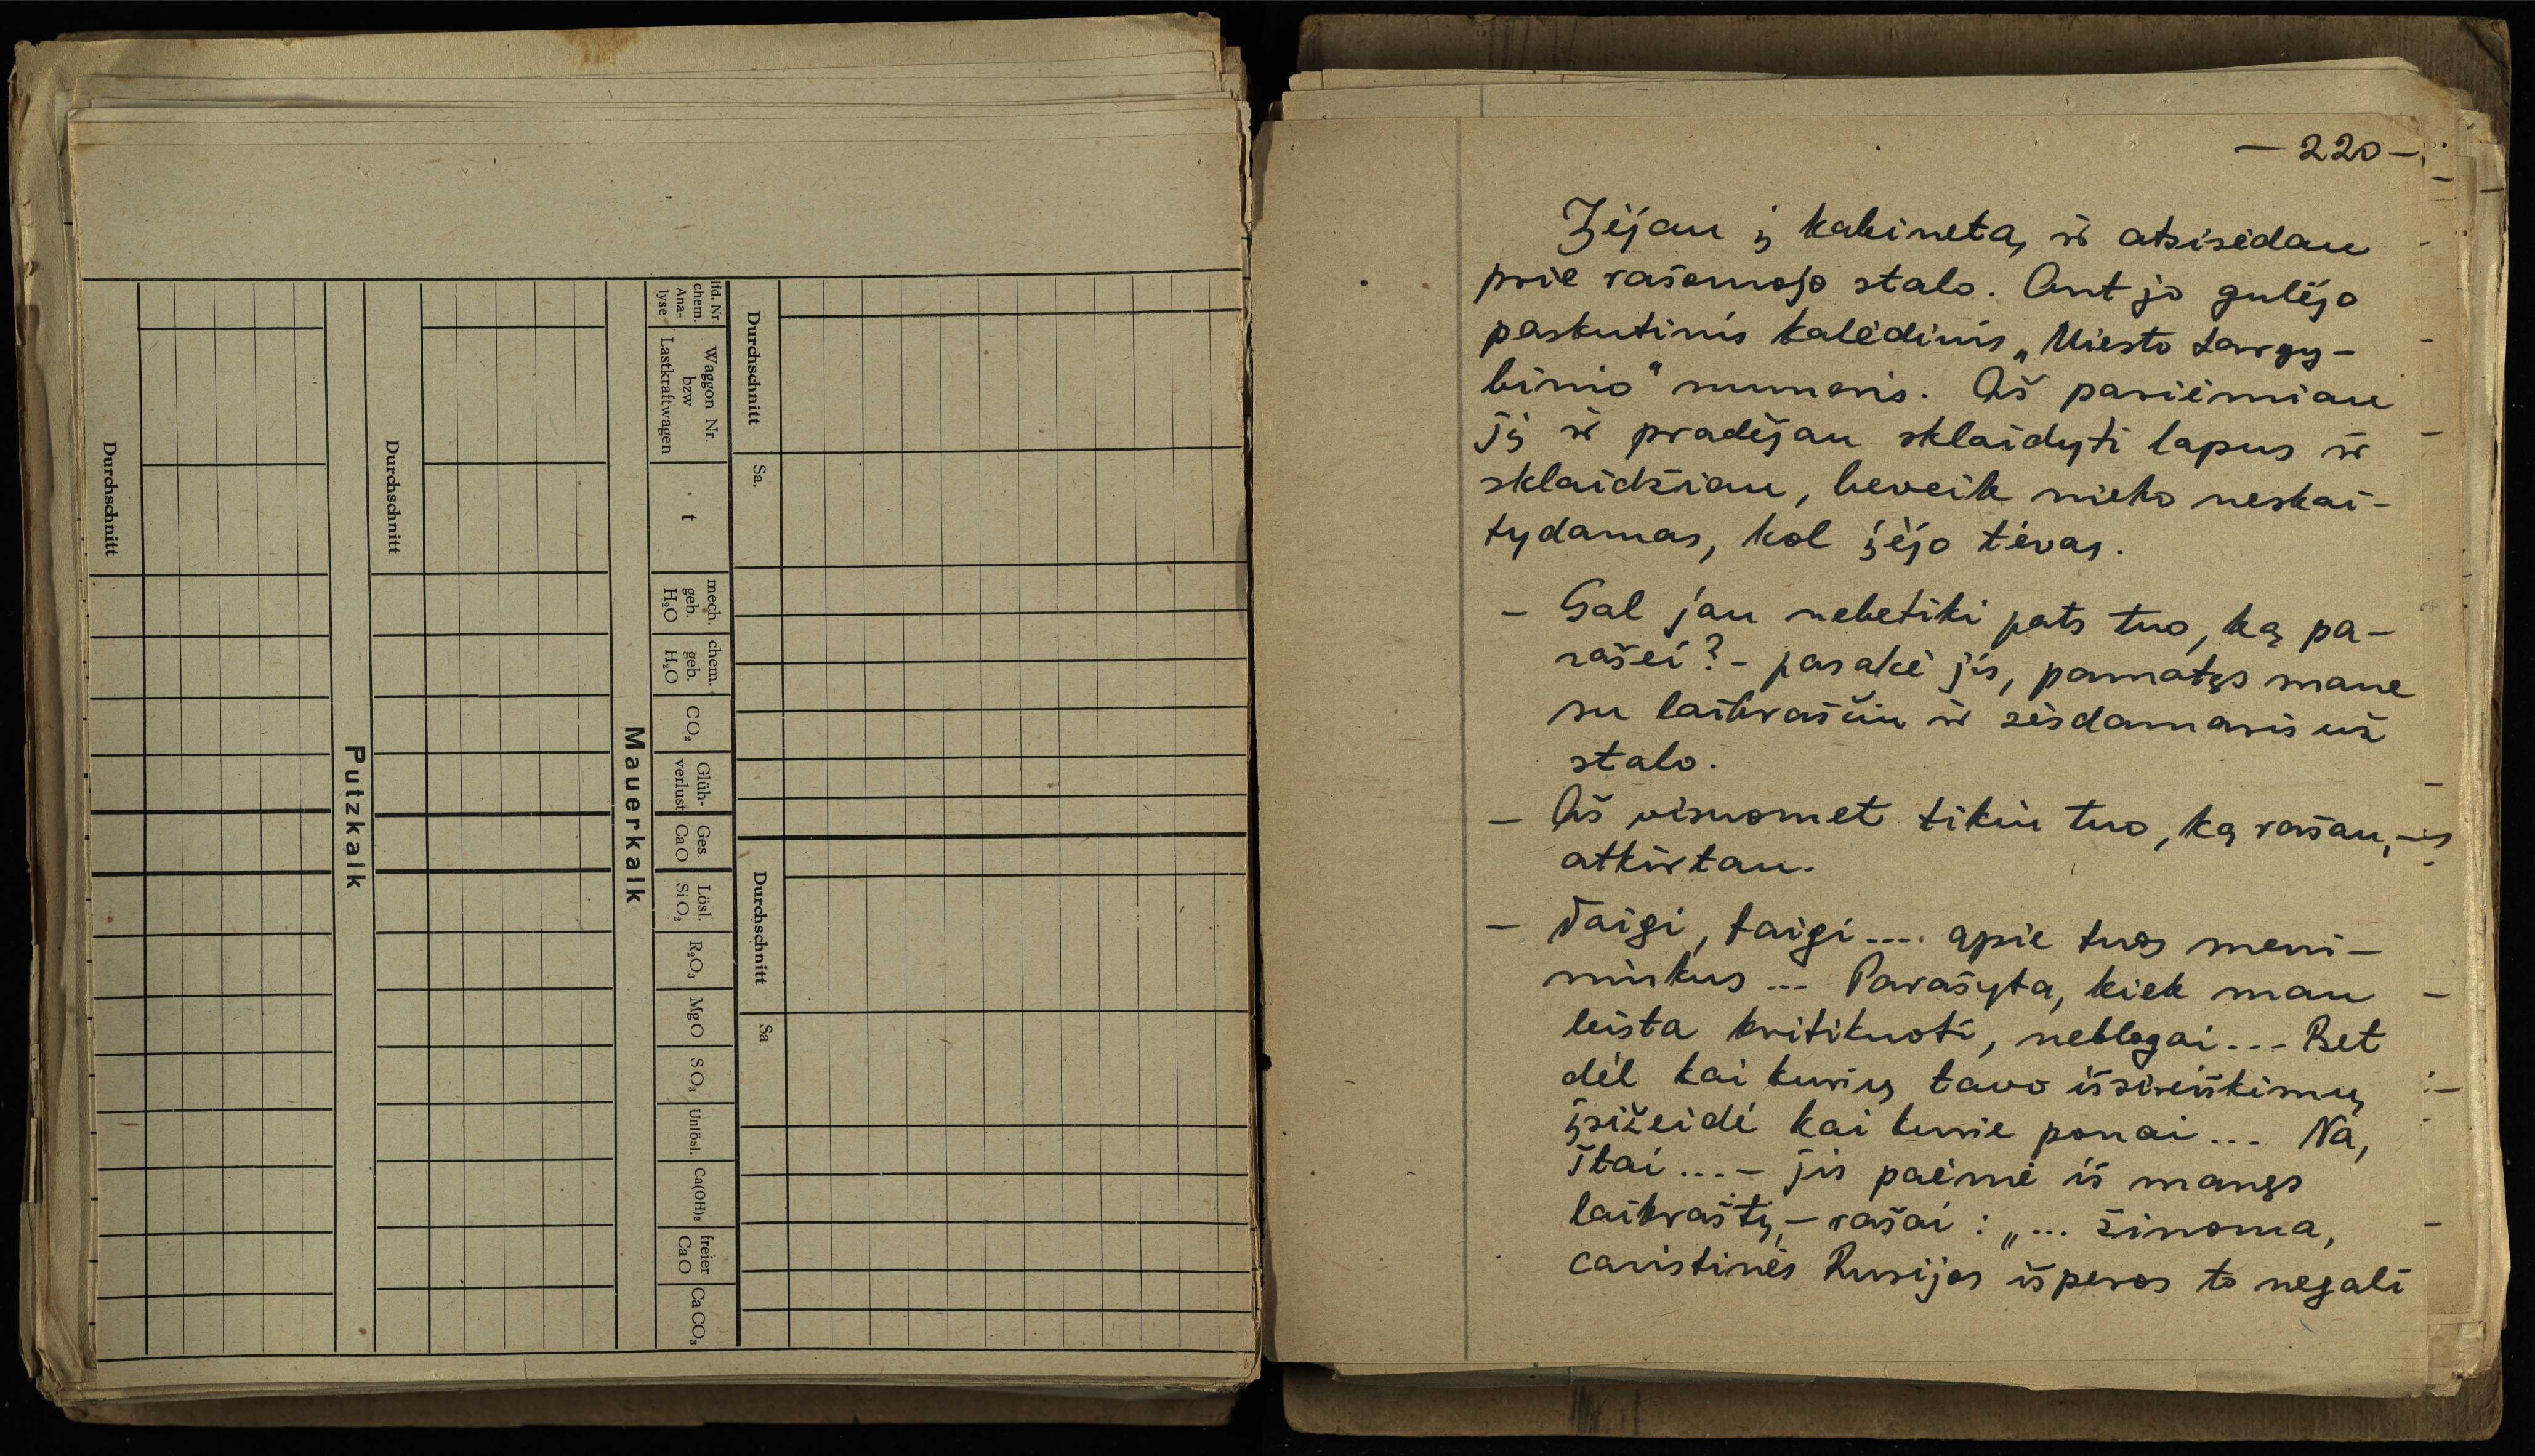 Durchschnitt
Sa.
Durchschnitt
Sa
lfd. Nr
chem.
Ana-
lyse
Waggon Nr.
bzw
Lastkraftwagen
t
mech.
geb.
H₂O
chem.
geb.
H₂O
CO₂
Glüh-
verlust
Ges.
CaO
Lösl.
SiO₂
R₂O₃
MgO
SO₃
Unlösl.
Ca(OH)₂
freier
CaO
CaCO₃
Mauerkalk
Durchschnitt
Putzkalk
Durchschnitt
— 220 —
Įėjau į kabinetą ir atsisėdau
prie rašomojo stalo. Ant jo gulėjo
paskutinis kalėdinis „Miesto sargy-
binio“ numeris. Aš pasiėmiau
jį ir pradėjau sklaidyti lapus ir
sklaidžiau, beveik nieko neskai-
tydamas, kol įėjo tėvas.
- Gal jau nebetiki pats tuo, ką pa-
rašei? - pasakė jis, pamatęs mane
su laikraščiu ir sėsdamasis už
stalo.
- Aš visuomet tikiu tuo, ką rašau, -
atkirtau.
- Taigi, taigi.... apie tuos meni-
ninkus ... Parašyta, kiek man
leista kritikuoti, neblogai... Bet
dėl kai kurių tavo išsireiškimų
įsižeidė kai kurie ponai... Na,
štai... - jis paėmė iš manęs
laikraštį, - rašai: „... žinoma,
caristinės Rusijos išperos to negali